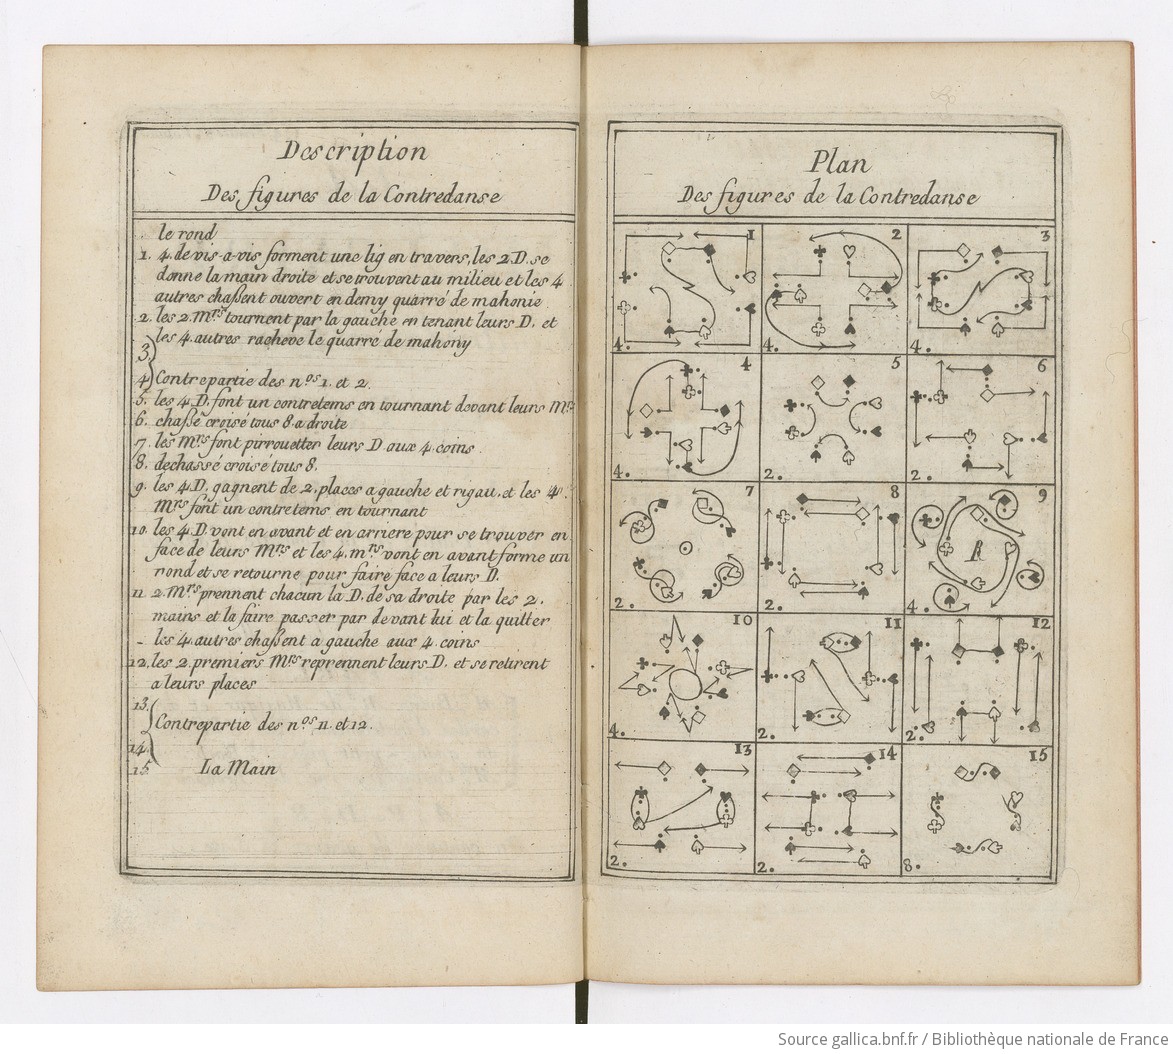 Description
Des figures de la Contredanse
le rond
1. 4. de vis-a-vis forment une lig en travers, les 2. D. se
donne la main droite et se trouvent au milieu et les 4
autres chaſsent ouvert en demy quarré de mahonie
2. les 2. Mrs tournent par la gauche en tenant leurs D. et
les 4. autres racheve le quarré de mahony
3
4 Contrepartie des nos 1. et 2.
5. les 4. D. font un contretems en tournant devant leurs Mrs
6. chaſsé croisé tous 8. a droite
7. les Mrs font pirrouetter leurs D. aux 4. coins
8. dechassé croisé tous 8.
9. les 4. D. gagnent de 2. places a gauche et rigau. et les 4.
Mrs font un contretems en tournant
10. les 4. D. vont en avant et en arriere pour se trouver en
face de leurs Mrs et les 4. mrs vont en avant forme un
rond et se retourne pour faire face a leurs D.
11 2. Mrs prennent chacun la D. de sa droite par les 2.
mains et la faire passer par devant lui et la quitter
les 4. autres chaſsent a gauche aux 4. coins
12. les 2. premiers Mrs reprennent leurs D. et se retirent
a leurs places
13.
Contrepartie des nos 11. et 12.
14.
15. La Main
Plan
Des figures de la Contredanse
1 2 3
4. 4. 4.
4 5 6
4. 2. 2.
7 8 9
R
2. 2. 4.
10 11 12
4. 2. 2.
13 14 15
2. 2. 8.
Source gallica.bnf.fr / Bibliothèque nationale de France